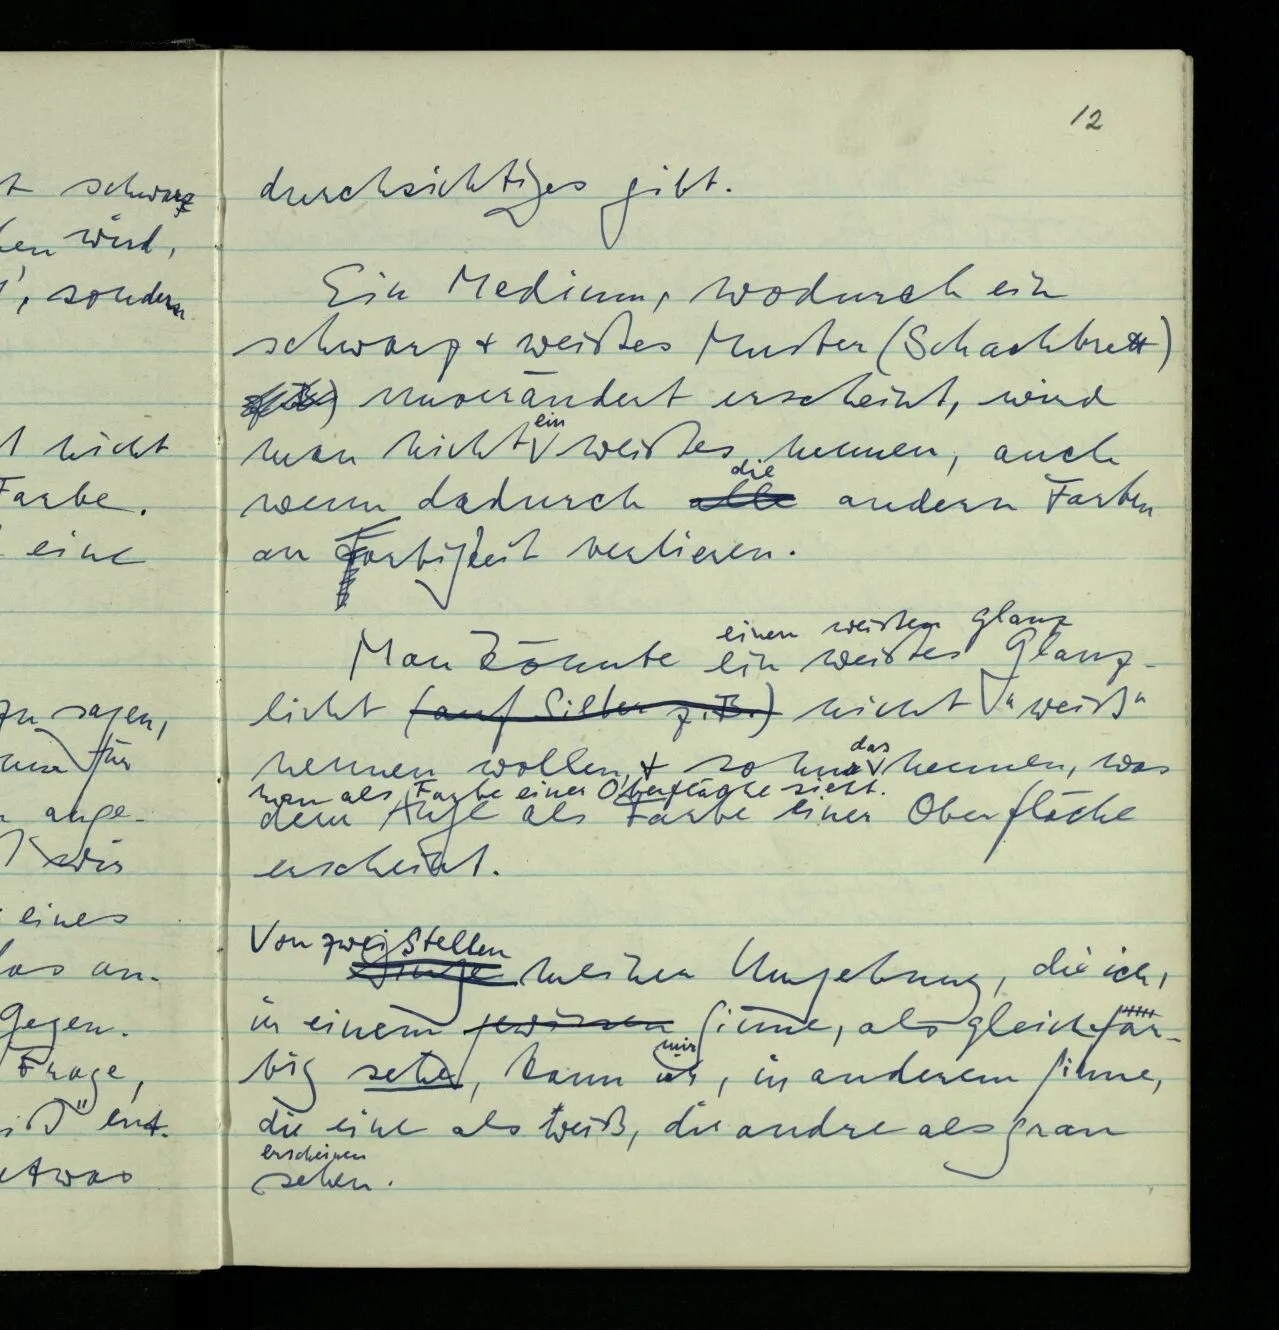 12
t schwarz
ken wird,
, sondern
t nicht
Farbe.
eine
zu sagen,
für
ange-
wir
eines
das an-
Gegen-
Frage,
iß" ent-
etwas
durchsichtiges gibt.
Ein Medium, wodurch ein
schwarz + weißes Muster (Schachbrett)
unverändert erscheint, wird
ein
man nicht weißes nennen, auch
die
wenn dadurch alle andern Farben
an Farbigkeit verlieren.
einen weißen Glanz
Man könnte ein weißes Glanz-
licht (auf Silber z.B.) nicht "weiß"
das
nennen wollen, + so nur nennen, was
man als Farbe einer Oberfläche sieht.
dem Auge als Farbe einer Oberfläche
erscheint.
Von zwei Stellen
Dinge meiner Umgebung, die ich,
in einem gewissen Sinne, als gleichfär-
mir
big sehe, kann, in anderem Sinne,
die eine als weiß, die andre als grau
erscheinen
sehen.